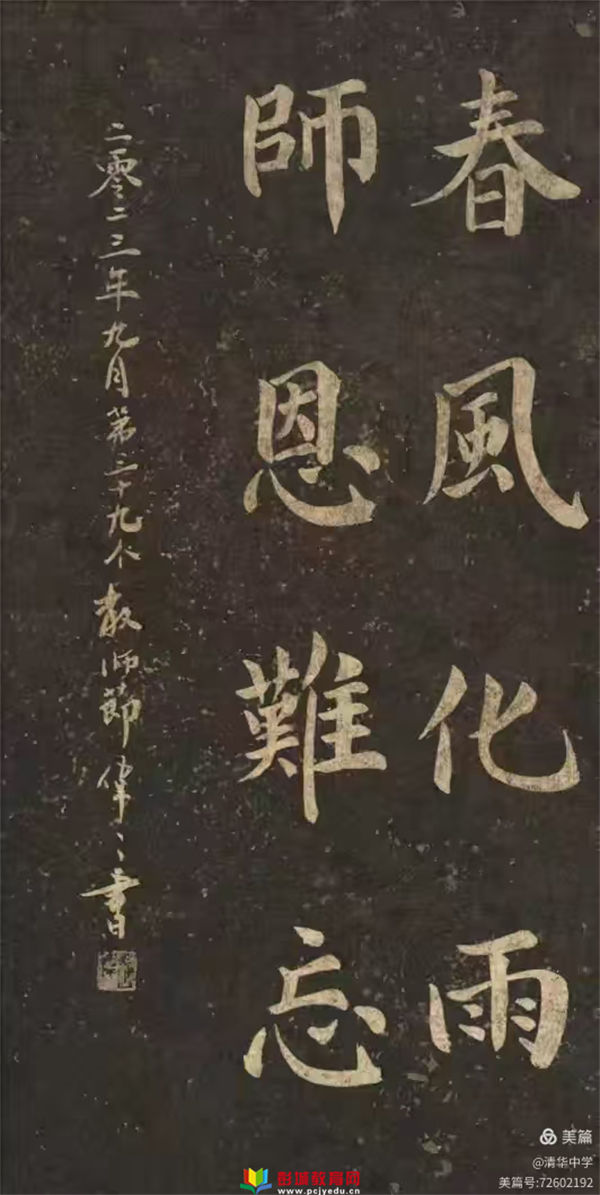 春風化雨
師恩難忘
二零二三年九月第三十九个教师節伟〻書
美篇
@清华中学
美篇号:72602192
彭城教育网
www.pcjyedu.cn